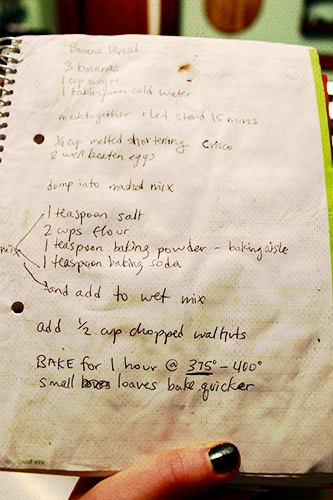 Banana Bread
3 bananas
1 cup sugar
1 tablespoon cold water
mash together + let stand 15 mins
1/4 cup melted shortening Crisco
2 well beaten eggs
dump into mashed mix
1 teaspoon salt
2 cups flour
mix 1 teaspoon baking powder - baking aisle
1 teaspoon baking soda
and add to wet mix
add 1/2 cup chopped walnuts
BAKE for 1 hour @ 375° - 400°
small loaves bake quicker